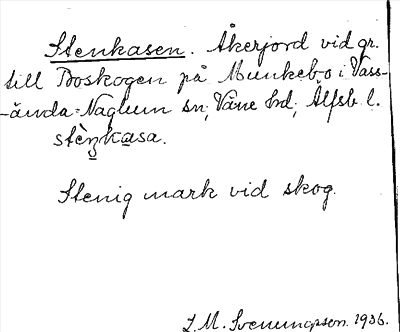 Stenkasen. Åkerjord vid gr.
till Boskogen på Munkebo i Vass-
-ända-Naglum sn; Väne hd; Älfsb l.
stèŋkasa.
Stenig mark vid skog.
L. M. Svenungsson. 1936.